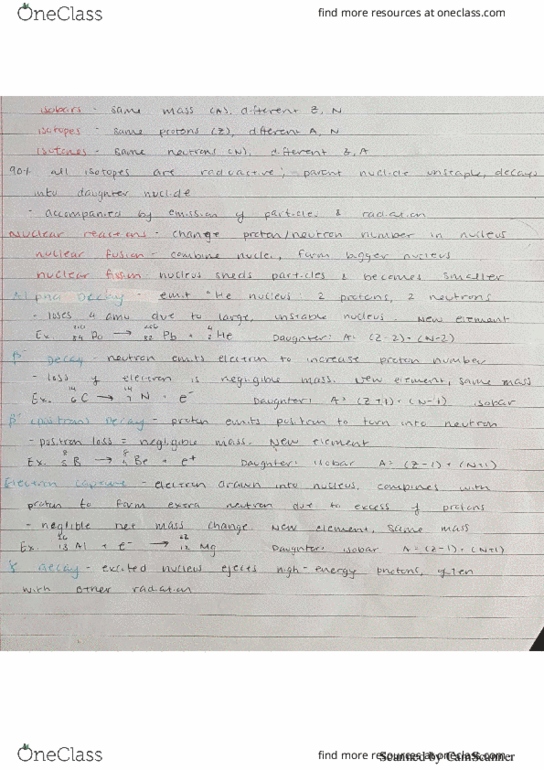 OneClass find more resources at oneclass.com
isobars - same mass (A), different Z, N
isotopes - same protons (Z), different A, N
isotones - same neutrons (N), different Z, A
90% all isotopes are radioactive; parent nuclide unstable, decays
into daughter nuclide
- accompanied by emission of particles & radiation
Nuclear reactions - change proton/neutron number in nucleus
nuclear fusion - combine nuclei, form bigger nucleus
nuclear fission nucleus sheds particles & becomes smaller
Alpha Decay - emit ⁴He nucleus: 2 protons, 2 neutrons
- loses 4 amu due to large, unstable nucleus. New element
Ex. ²¹⁰₈₄Po → ²⁰⁶₈₂Pb + ⁴₂He Daughter: A = (Z-2) + (N-2)
β⁻ Decay - neutron emits electron to increase proton number
- loss of electron is negligible mass. New element, same mass
Ex. ¹⁴₆C → ¹⁴₇N + e⁻ Daughter: A = (Z+1) + (N-1) isobar
(positron) Decay - proton emits positron to turn into neutron
- positron loss = negligible mass. New element
Ex. ⁸₅B → ⁸₄Be + e⁺ Daughter: isobar A = (Z-1) + (N+1)
Electron capture - electron drawn into nucleus, combines with
proton to form extra neutron due to excess of protons
- neglible net mass change. New element, same mass
Ex. ²⁶₁₃Al + e⁻ → ₁₂Mg Daughter: isobar A = (Z-1) + (N+1)
γ decay - excited nucleus ejects high-energy photons, often
with other radiation
OneClass find more resources at oneclass.com
Scanned by CamScanner